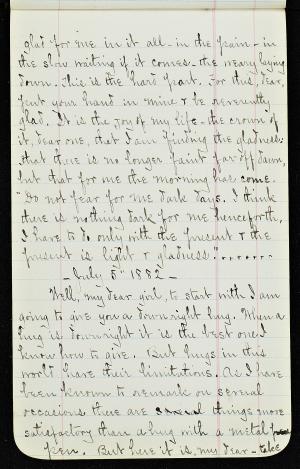 glad for me in it all - in the pain - in
the slow waiting if it comes - the weary laying
down - This is the hard part. For this, dear,
put your hand in mine & be reverently
glad. It is the joy of my life - the crown of
it, dear one, that I am finding the gladness:
that there is no longer faint far-off dawn,
but that for me the morning has come.
"Do not fear for me dark days. I think
there is nothing dark for me henceforth,
I have to do only with the present & the
present is light & gladness." ........
- July 5th 1882 -
Well, my dear girl, to start with I am
going to give you a downright hug. When a
hug is downright it is the best one I
know how to give. But hugs in this
world have their limitations. As I have
been known to remark on several
occasions there are several things more
satisfactory than a hug with a metal
pen. But here it is, my dear - take